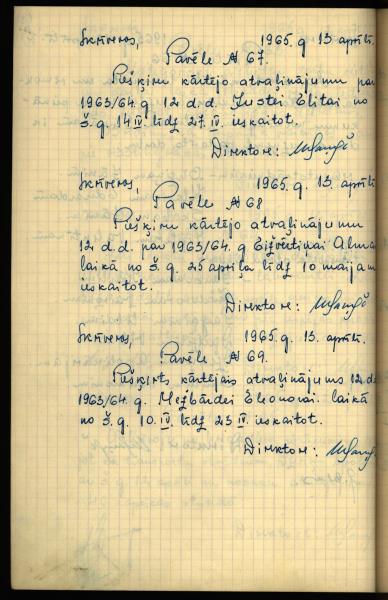 Skrīveros, 1965. g. 13 aprīlī.
Pavēle № 67.
Piešķiru kārtējo atvaļinājumu par
1963/64. g. 12 d. d. Elitai no
š. g. 14 IV līdz 27. IV. ieskaitot.
Direktore:
Skrīveros, 1965. g. 13. aprīlī
Pavēle № 68
Piešķiru kārtējo atvaļinājumu
12 d. d. par 1963/64. g
laikā no š. g. 25 aprīļa līdz 10 maijam
ieskaitot.
Direktore:
Skrīveros, 1965. g. 13. aprīlī.
Pavēle № 69.
Piešķirts kārtējais atvaļinājums 12 d.
1963/64. g. Mežbārdei Eleonorai. laikā
no š. g. 10. IV. līdz 23 IV. ieskaitot.
Direktore: